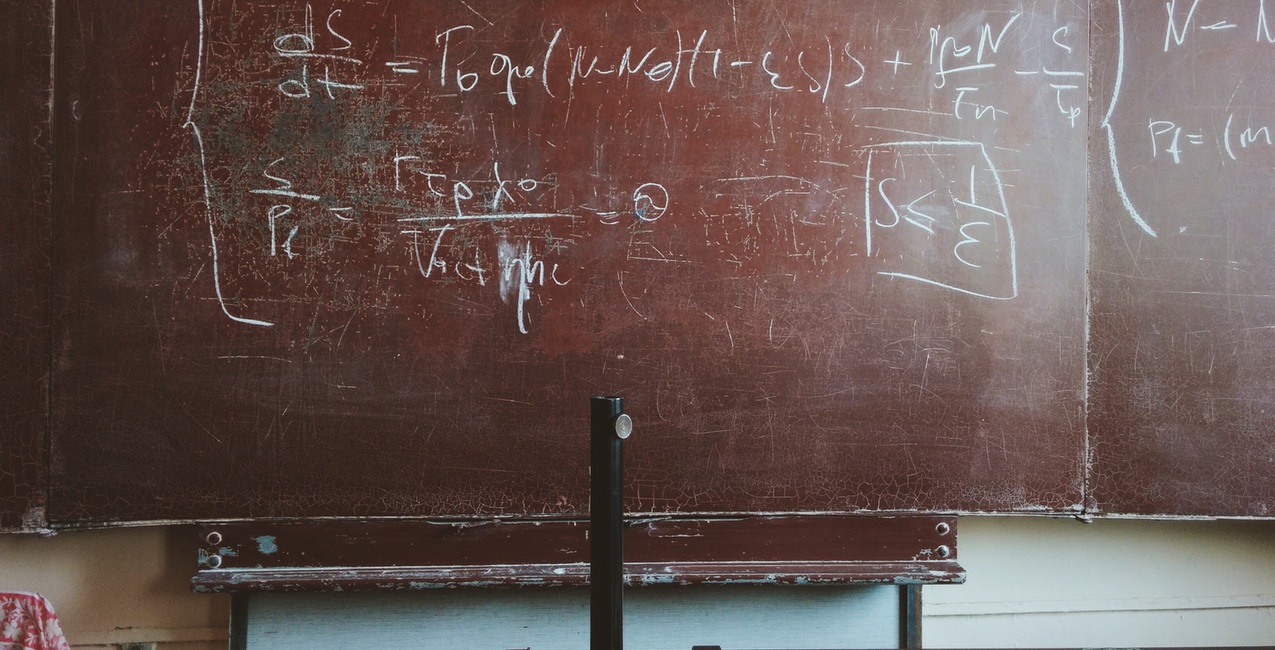 dS/dt = Γ₀ g₀ (N - N₀)(1 - εS)S + Γβ₀N/τₙ - S/τₚ
S/P_f = Γτₚλ₀/V_act ηhc = ②
S ≤ 1/ε
N = N
P_f = (m